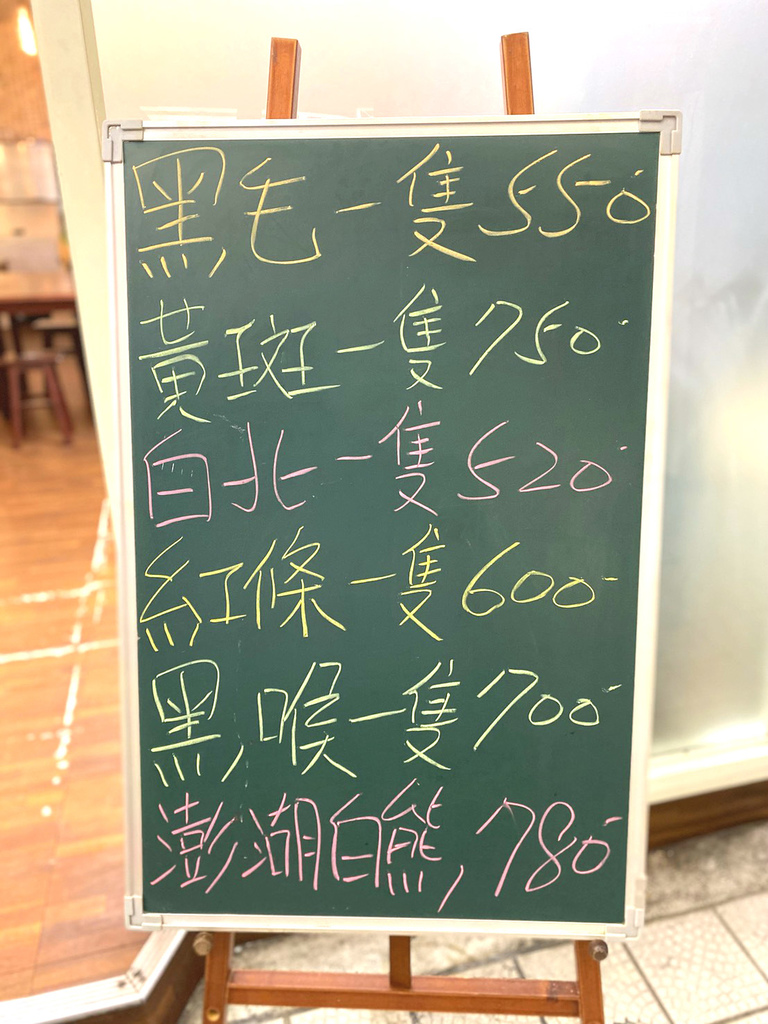 黑毛一隻550
黃斑一隻750
白北一隻520
紅條一隻600
黑喉一隻700
澎湖白熊780